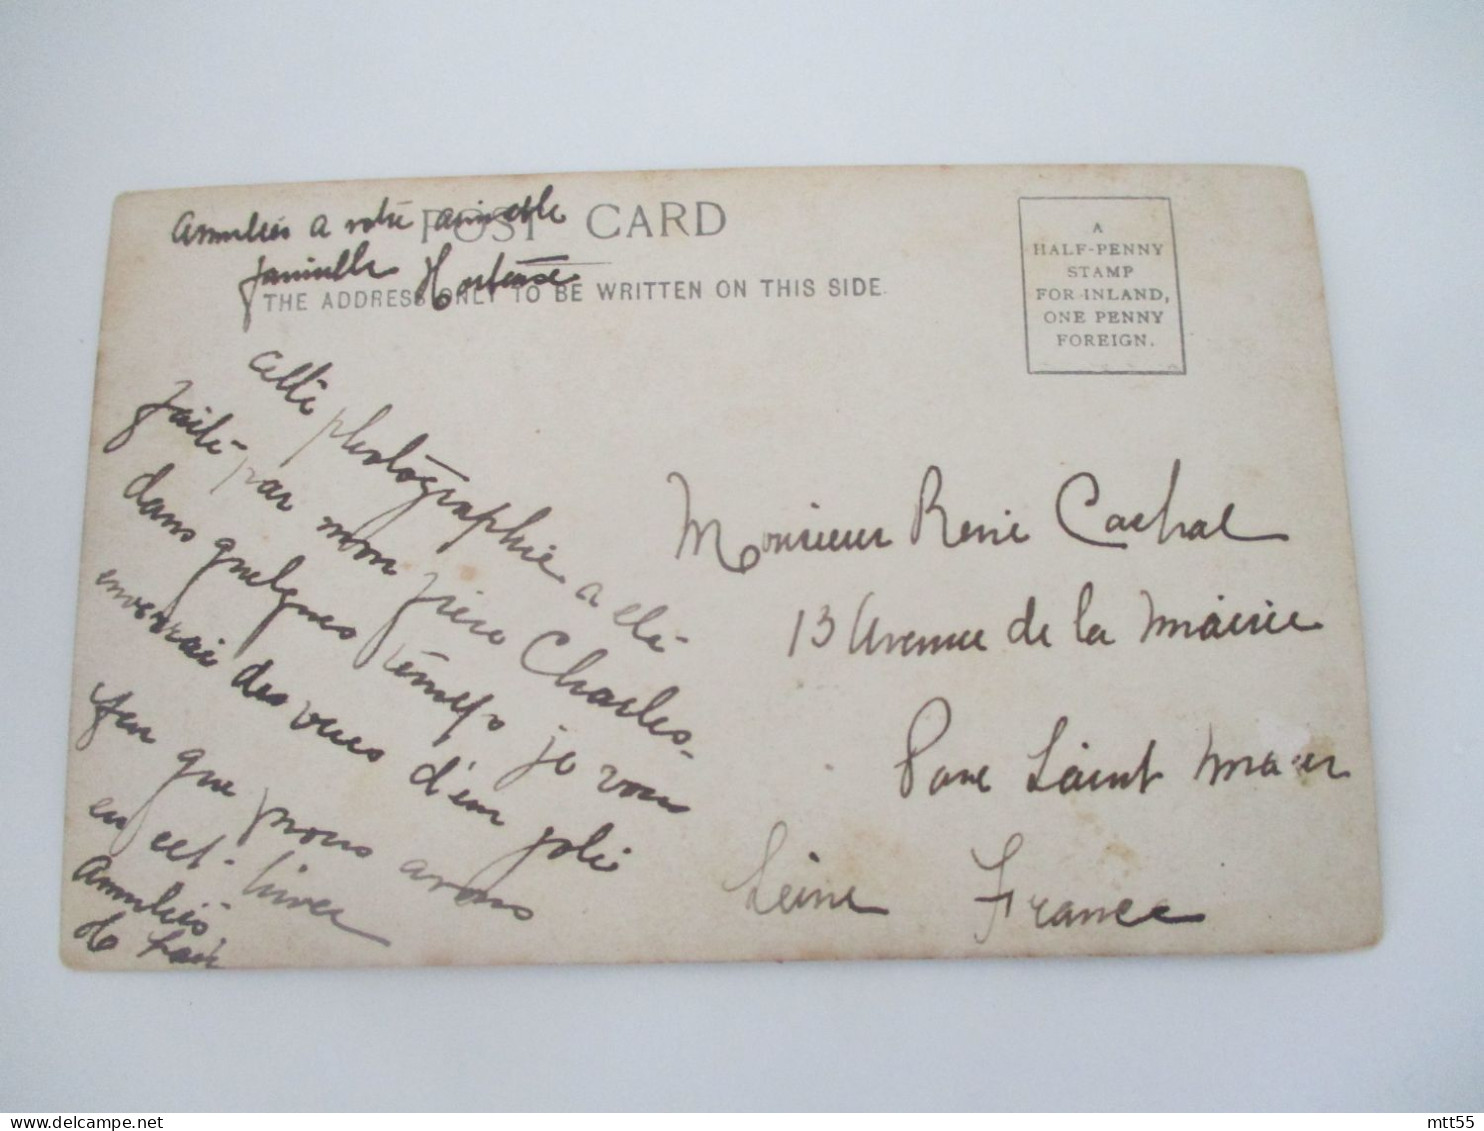 Amitiés a votre aimable
famille Hortense
POST CARD
THE ADDRESS ONLY TO BE WRITTEN ON THIS SIDE.
A
HALF-PENNY
STAMP
FOR INLAND,
ONE PENNY
FOREIGN.
cette photographie a eté
faite par mon frère Charles-
dans quelques temps je vous
enverrai des vues d'un joli
que nous avons
en cet hiver
Amitiés
de
Monsieur René Cachal
13 Avenue de la Mairie
Parc Saint Maur
Seine France
mtt55